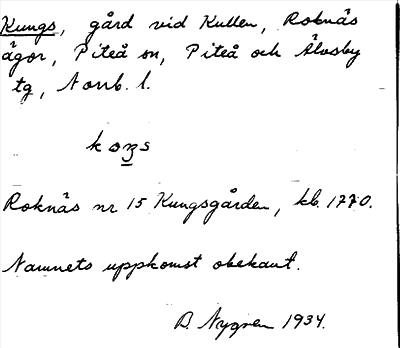 Kungs, gård vid Kullen, Roknäs
ägor, Piteå sn, Piteå och Älvsby
tg, Norrb. l.
koŋs
Roknäs nr 15 Kungsgården, kb. 1770.
Namnets uppkomst obekant.
D. Nygren 1934.